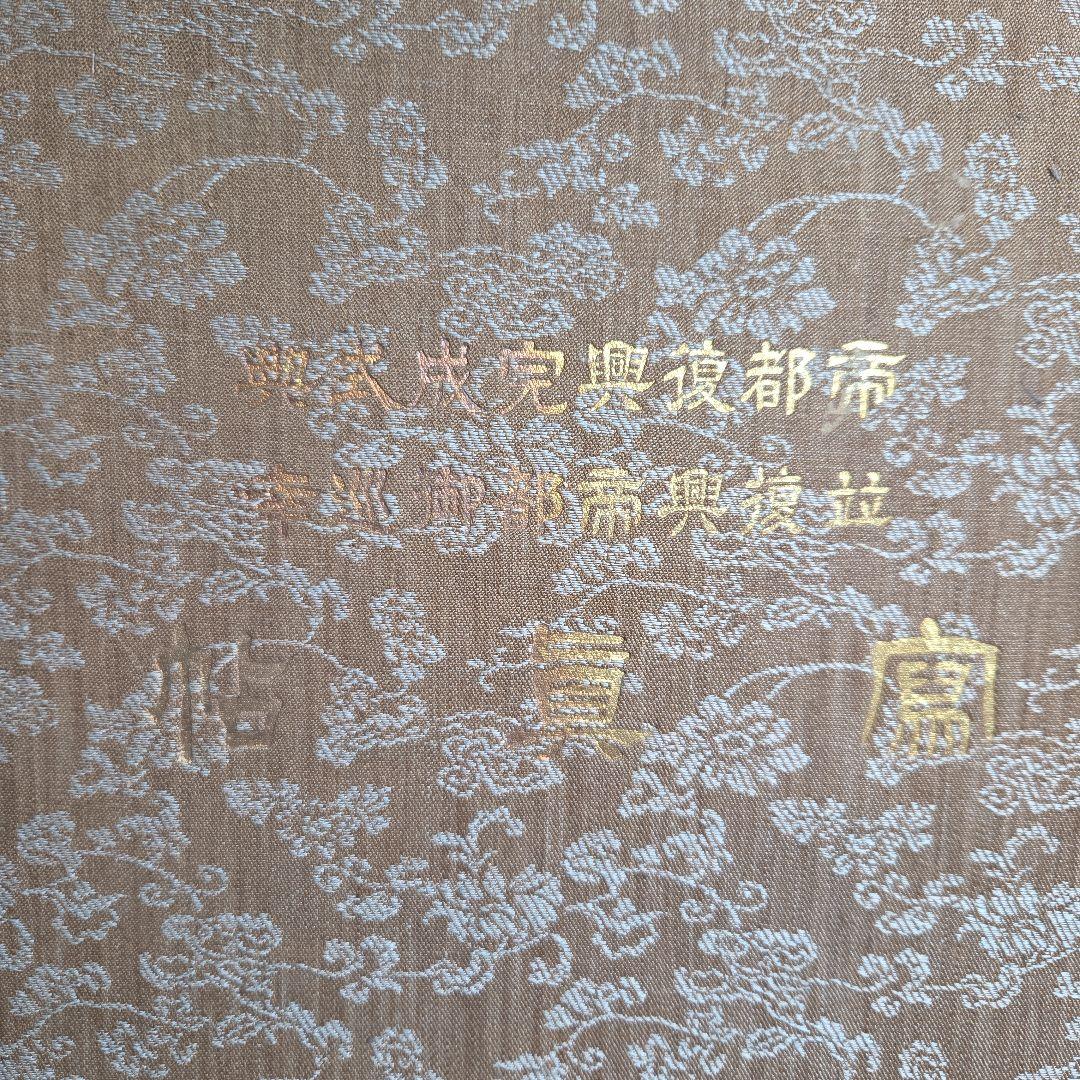 帝都復興完成式典
並復興帝都御巡幸
寫眞帖